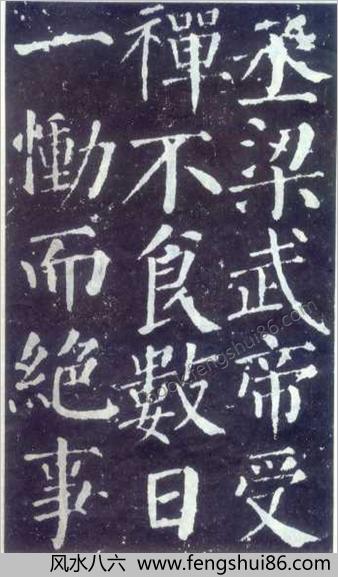 丞梁武帝受
禪不食數日
一慟而絕事
www.fengshui86.com
风水八六 www.fengshui86.com